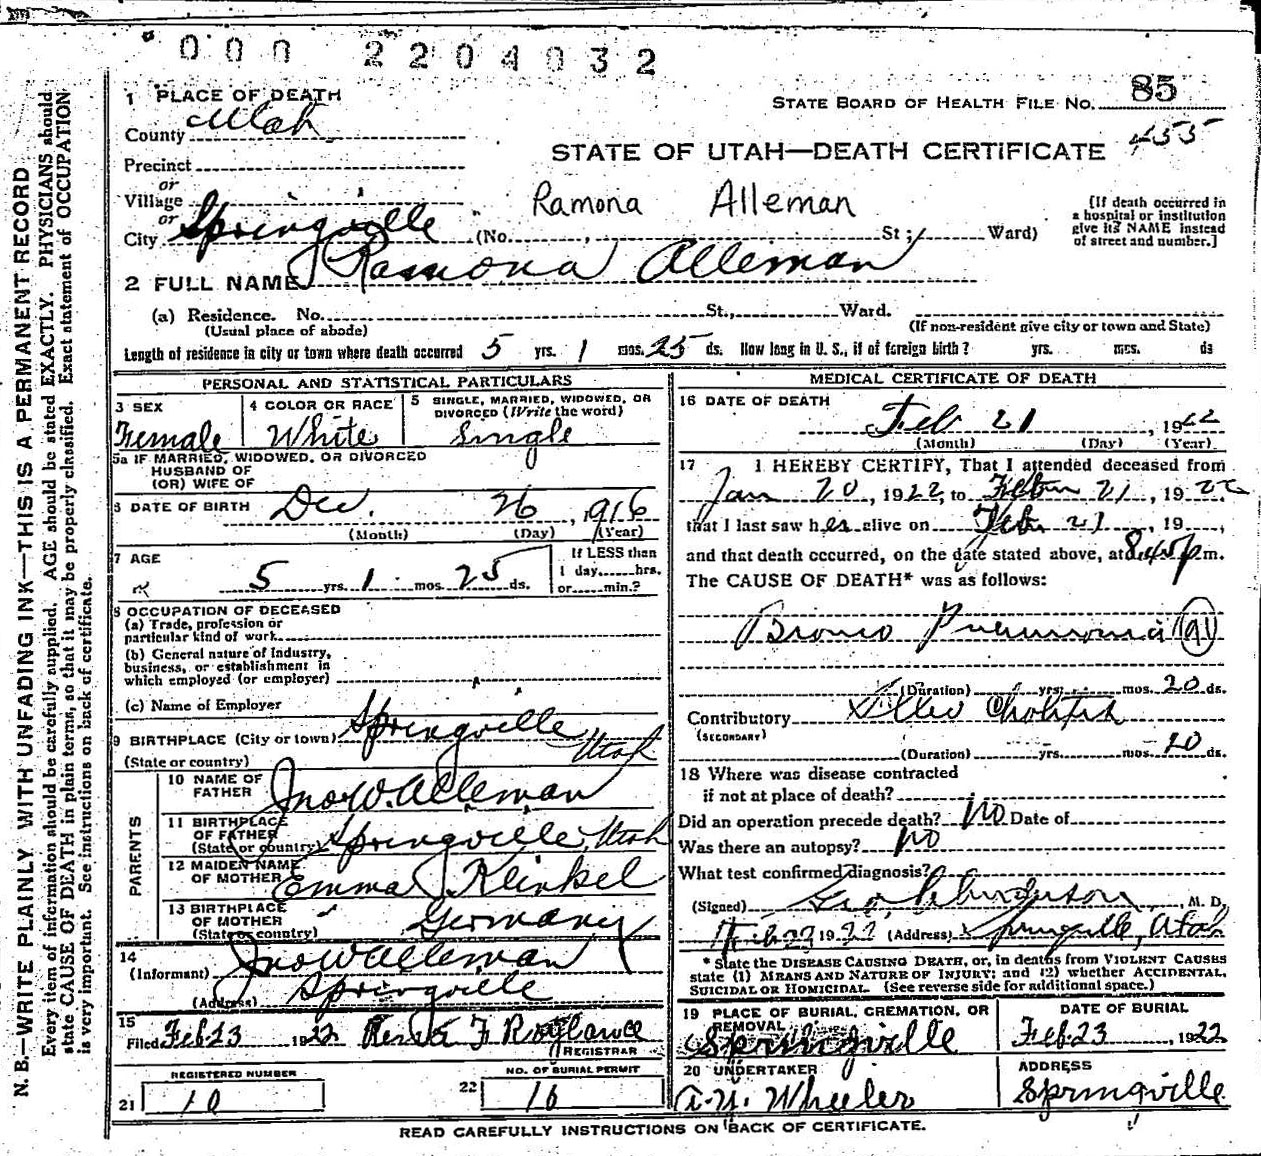 000 2204032
1 PLACE OF DEATH
STATE BOARD OF HEALTH FILE NO. 85
County Utah
455
STATE OF UTAH—DEATH CERTIFICATE
Precinct
or
Village
Ramona Alleman
or
City Springville (No. , St ; Ward)
[If death occurred in
a hospital or institution
give its NAME instead
of street and number.]
2 FULL NAME Ramona Alleman
(a) Residence. No. St., Ward.
(Usual place of abode)
(If non-resident give city or town and State)
Length of residence in city or town where death occurred 5 yrs. 1 mos. 25 ds. How long in U. S., if of foreign birth? yrs. mos. ds
PERSONAL AND STATISTICAL PARTICULARS
3 SEX
Female
4 COLOR OR RACE
White
5 SINGLE, MARRIED, WIDOWED, OR
DIVORCED (Write the word)
Single
5a IF MARRIED, WIDOWED, OR DIVORCED
HUSBAND OF
(OR) WIFE OF
6 DATE OF BIRTH Dec. 26, 1916
(Month) (Day) (Year)
7 AGE
5 yrs. 1 mos. 25 ds.
If LESS than
1 day hrs.
or min.?
8 OCCUPATION OF DECEASED
(a) Trade, profession or
particular kind of work
(b) General nature of Industry,
business, or establishment in
which employed (or employer)
(c) Name of Employer
9 BIRTHPLACE (City or town) Springville
(State or country) Utah
PARENTS
10 NAME OF
FATHER Jno W. Alleman
11 BIRTHPLACE
OF FATHER
(State or country) Springville, Utah
12 MAIDEN NAME
OF MOTHER Emma Klinkel
13 BIRTHPLACE
OF MOTHER
(State or country) Germany
14
(Informant) Jno W Alleman
(Address) Springville
15
Filed Feb 23 1922
REGISTRAR
REGISTERED NUMBER
21 10
NO. OF BURIAL PERMIT
22 16
MEDICAL CERTIFICATE OF DEATH
16 DATE OF DEATH
Feb 21, 1922
(Month) (Day) (Year)
17 I HEREBY CERTIFY, That I attended deceased from
Jan 20, 1922, to 21, 1922
that I last saw her alive on 21, 19
and that death occurred, on the date stated above, at 8:45 p m.
The CAUSE OF DEATH* was as follows:
Bronco Pneumonia 91
(Duration) yrs. mos. 20 ds.
Contributory
(SECONDARY)
(Duration) yrs. mos. 20 ds.
18 Where was disease contracted
if not at place of death?
Did an operation precede death? No Date of
Was there an autopsy? No
What test confirmed diagnosis?
(Signed) Geo , M. D.
Feb 23 1922 (Address) Springville, Utah
* State the DISEASE CAUSING DEATH, or, in deaths from VIOLENT CAUSES
state (1) MEANS AND NATURE OF INJURY; and (2) whether ACCIDENTAL,
SUICIDAL OR HOMICIDAL. (See reverse side for additional space.)
19 PLACE OF BURIAL, CREMATION, OR
REMOVAL
Springville
DATE OF BURIAL
Feb. 23, 1922
20 UNDERTAKER
A. Y. Wheeler
ADDRESS
Springville
READ CAREFULLY INSTRUCTIONS ON BACK OF CERTIFICATE.
N. B.—WRITE PLAINLY WITH UNFADING INK—THIS IS A PERMANENT RECORD
Every item of information should be carefully supplied. AGE should be stated EXACTLY. PHYSICIANS should
state CAUSE OF DEATH in plain terms, so that it may be properly classified. Exact statement of OCCUPATION
is very important. See instructions on back of certificate.